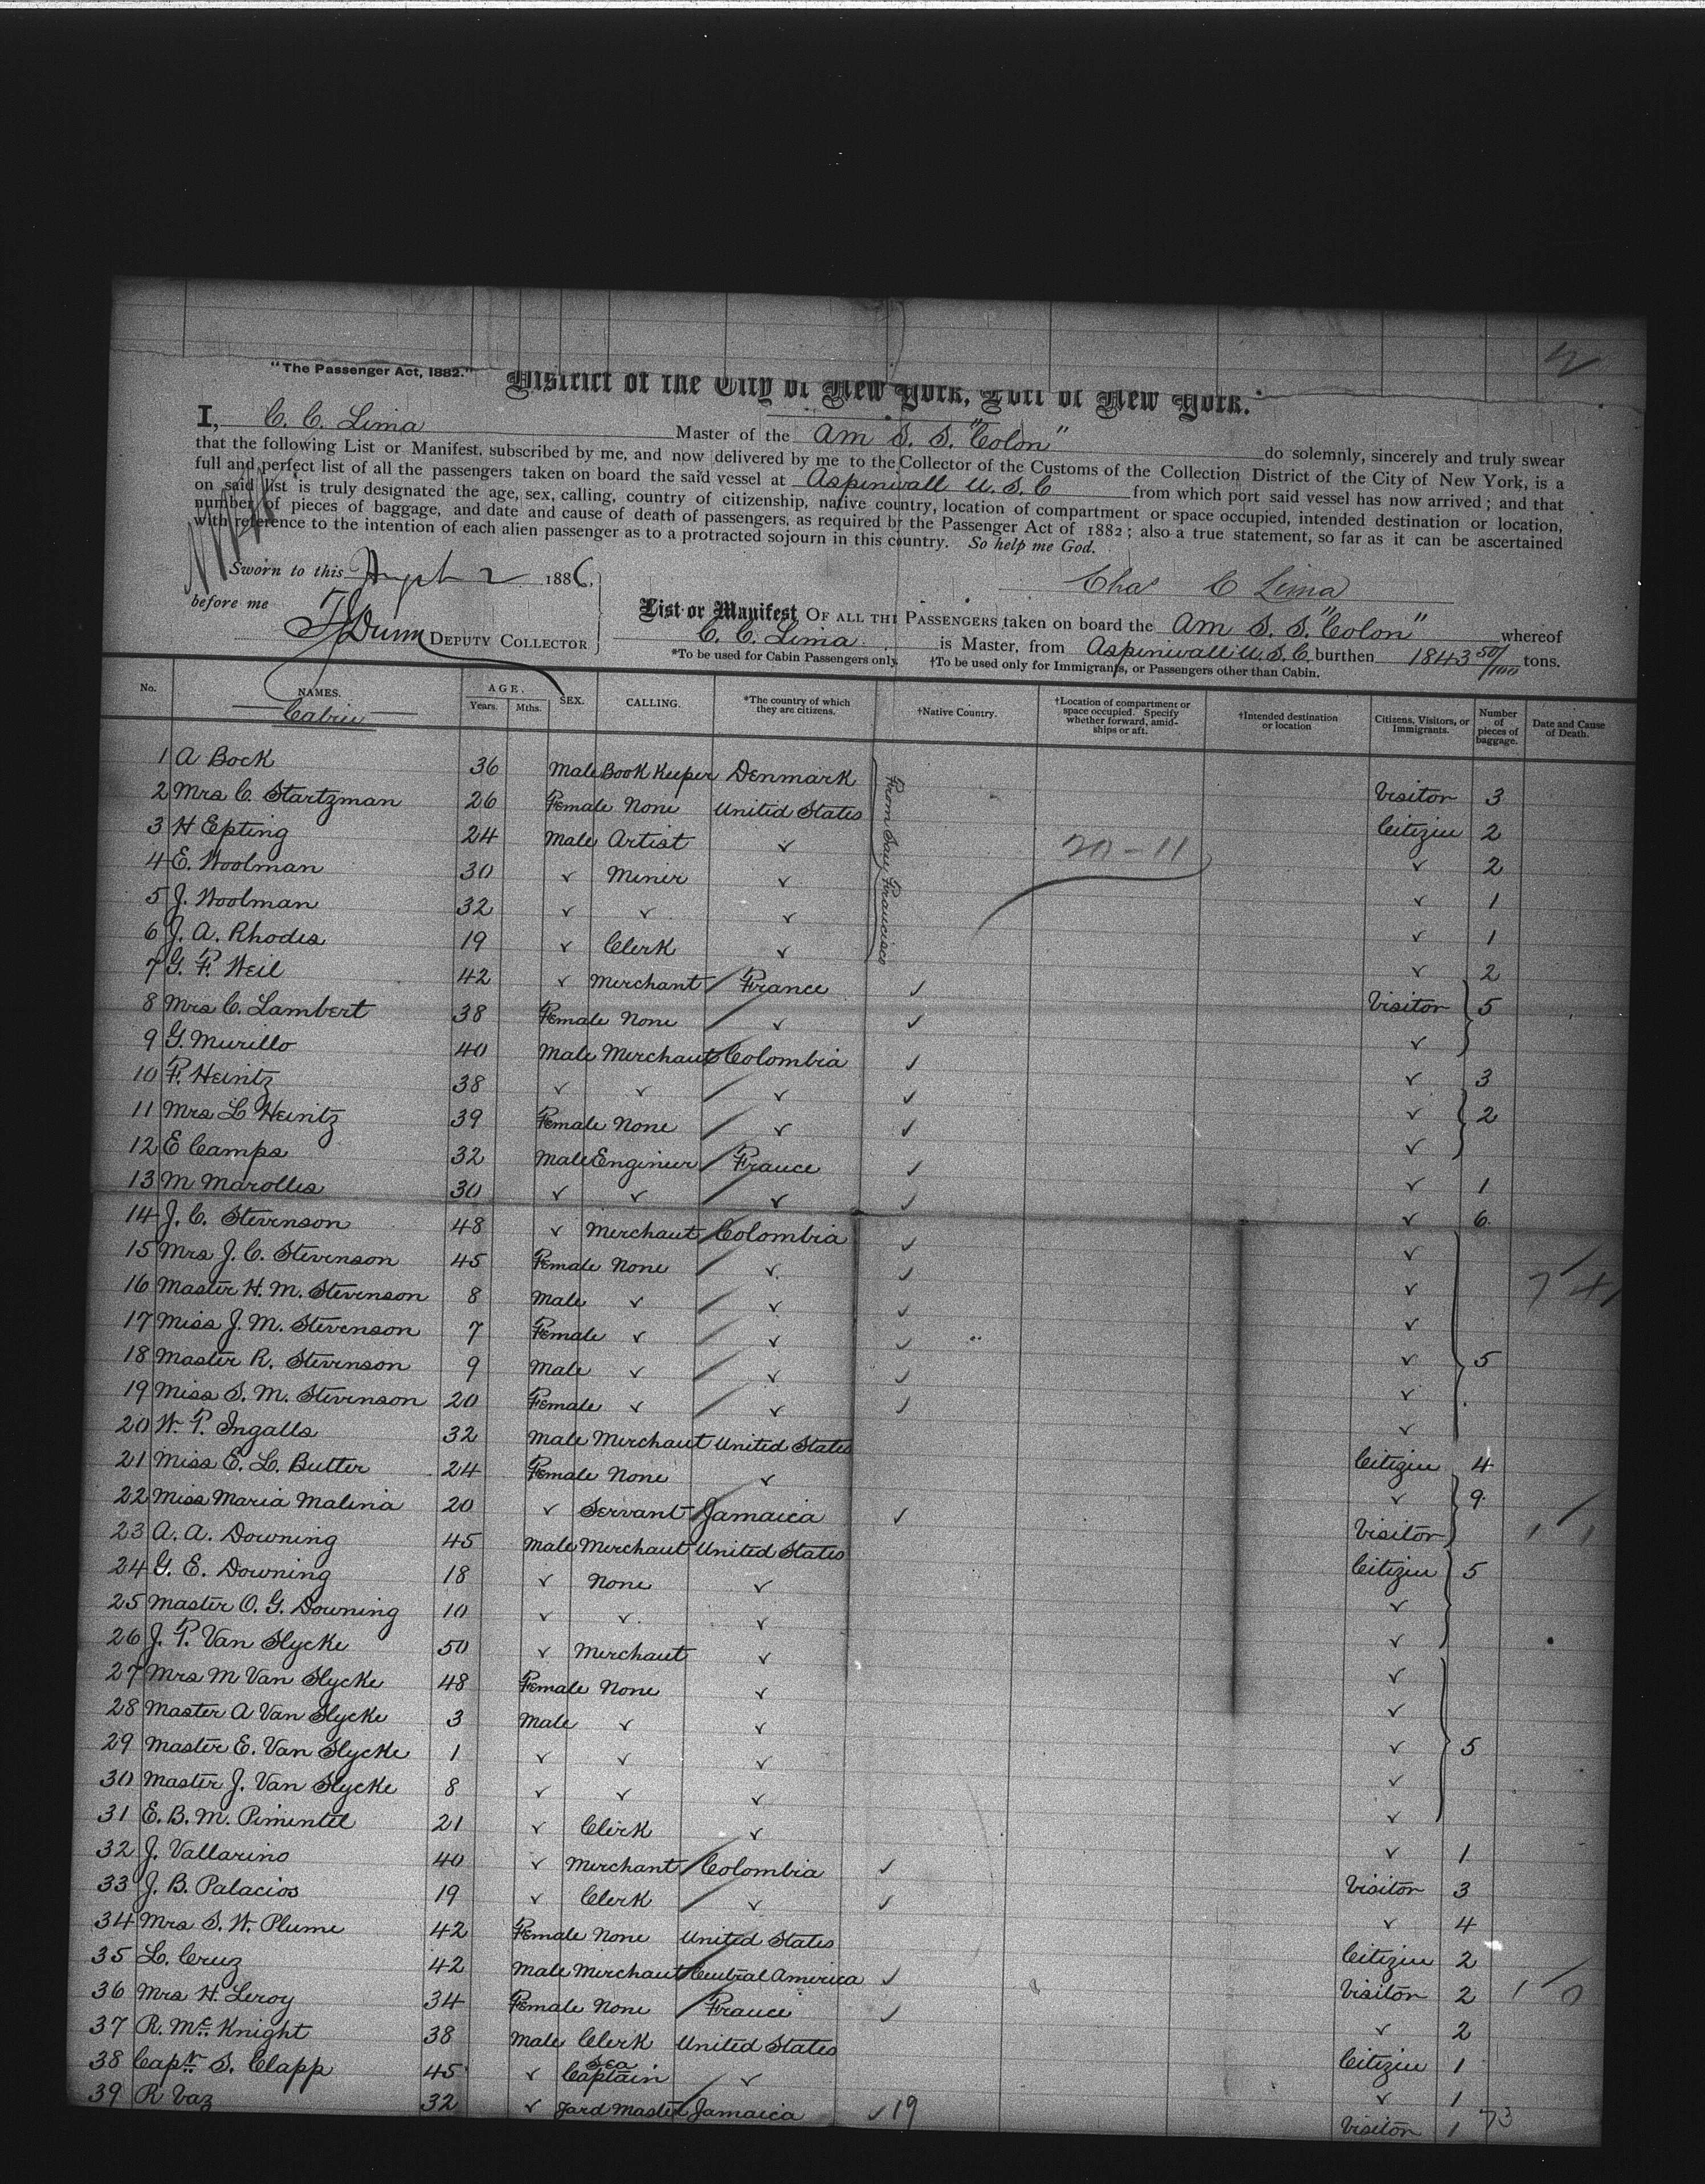 "The Passenger Act, 1882."
District of the City of New York, Port of New York.
I, C. C. Lima Master of the Am S. S. "Colon" do solemnly, sincerely and truly swear
that the following List or Manifest, subscribed by me, and now delivered by me to the Collector of the Customs of the Collection District of the City of New York, is a
full and perfect list of all the passengers taken on board the said vessel at Aspinwall U. S. C from which port said vessel has now arrived; and that
on said list is truly designated the age, sex, calling, country of citizenship, native country, location of compartment or space occupied, intended destination or location,
number of pieces of baggage, and date and cause of death of passengers, as required by the Passenger Act of 1882; also a true statement, so far as it can be ascertained
with reference to the intention of each alien passenger as to a protracted sojourn in this country. So help me God.
Sworn to this 2 1886,
Chas C Lima
before me
T Dunn DEPUTY COLLECTOR
List or Manifest OF ALL THE PASSENGERS taken on board the Am S. S. "Colon" whereof
C. C. Lima is Master, from Aspinwall U. S. C. burthen 1843 50/100 tons.
*To be used for Cabin Passengers only. †To be used only for Immigrants, or Passengers other than Cabin.
No. NAMES. AGE. Years. Mths. SEX. CALLING. *The country of which they are citizens. †Native Country. †Location of compartment or space occupied. Specify whether forward, amidships or aft. †Intended destination or location Citizens, Visitors, or Immigrants. Number of pieces of baggage. Date and Cause of Death.
Cabin
From San Francisco
20-11
1 A Bock 36 Male Book Keeper Denmark Visitor 3
2 Mrs C. Startzman 26 Female None United States Citizen 2
3 H Epting 24 Male Artist ✓ ✓ 2
4 E. Woolman 30 ✓ Miner ✓ ✓ 1
5 J. Woolman 32 ✓ ✓ ✓ ✓ 1
6 J. A. Rhodes 19 ✓ Clerk ✓ ✓ 2
7 G. F. Weil 42 ✓ Merchant France ✓ Visitor 5
8 Mrs C. Lambert 38 Female None ✓ ✓ ✓
9 G. Murillo 40 Male Merchant Colombia ✓ ✓ 3
10 F. Heintz 38 ✓ ✓ ✓ ✓ ✓ 2
11 Mrs L Heintz 39 Female None ✓ ✓ ✓
12 E Camps 32 Male Engineer France ✓ ✓ 1
13 M Marolles 30 ✓ ✓ ✓ ✓ ✓ 6
14 J. C. Stevenson 48 ✓ Merchant Colombia ✓ ✓
15 Mrs J. C. Stevenson 45 Female None ✓ ✓ ✓
16 Master H. M. Stevenson 8 Male ✓ ✓ ✓ ✓
17 Miss J. M. Stevenson 7 Female ✓ ✓ ✓ ✓ 5
18 Master R. Stevenson 9 Male ✓ ✓ ✓ ✓
19 Miss S. M. Stevenson 20 Female ✓ ✓ ✓ ✓
20 W. P. Ingalls 32 Male Merchant United States Citizen 4
21 Miss E. L. Butter 24 Female None ✓ ✓ 9
22 Miss Maria Malina 20 ✓ Servant Jamaica ✓ Visitor
23 A. A. Downing 45 Male Merchant United States Citizen 5
24 G. E. Downing 18 ✓ None ✓ ✓
25 Master O. G. Downing 10 ✓ ✓ ✓ ✓
26 J. P. Van Slycke 50 ✓ Merchant ✓ ✓
27 Mrs M Van Slycke 48 Female None ✓ ✓
28 Master A Van Slycke 3 Male ✓ ✓ ✓ 5
29 Master E. Van Slycke 1 ✓ ✓ ✓ ✓
30 Master J. Van Slycke 8 ✓ ✓ ✓ ✓
31 E. B. M. Pimentel 21 ✓ Clerk ✓ ✓ 1
32 J. Vallarino 40 ✓ Merchant Colombia ✓ Visitor 3
33 J. B. Palacios 19 ✓ Clerk ✓ ✓ ✓ 4
34 Mrs S. W. Plume 42 Female None United States Citizen 2
35 L. Cruz 42 Male Merchant Central America ✓ Visitor 2
36 Mrs H. Leroy 34 Female None France ✓ ✓ 2
37 R. Mc Knight 38 Male Clerk United States Citizen 1
38 Capt S. Clapp 45 ✓ Sea Captain ✓ ✓ 1
39 R Vaz 32 ✓ Yard Master Jamaica ✓ 19 Visitor 1 73